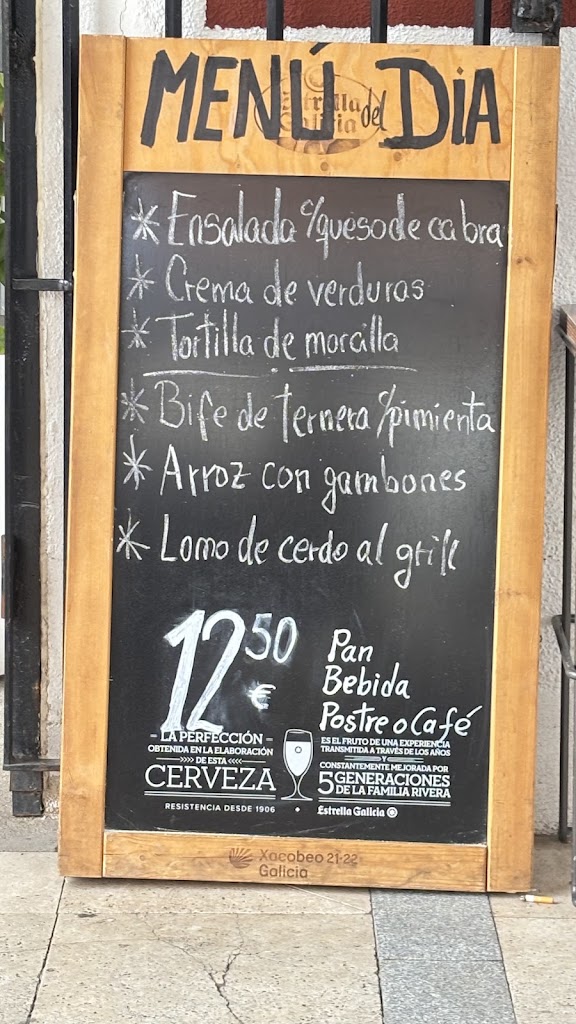 MENÚ del DIA
Estrella
Galicia
* Ensalada c/queso de cabra
* Crema de verduras
* Tortilla de morcilla
* Bife de ternera c/pimienta
* Arroz con gambones
* Lomo de cerdo al grill
12,50 €
Pan
Bebida
Postre o Café
- LA PERFECCIÓN -
OBTENIDA EN LA ELABORACIÓN
>>>> DE ESTA <<<<
CERVEZA
RESISTENCIA DESDE 1906
ES EL FRUTO DE UNA EXPERIENCIA
TRANSMITIDA A TRAVÉS DE LOS AÑOS
Y
CONSTANTEMENTE MEJORADA POR
5 GENERACIONES
DE LA FAMILIA RIVERA
Estrella Galicia
Xacobeo 21·22
Galicia